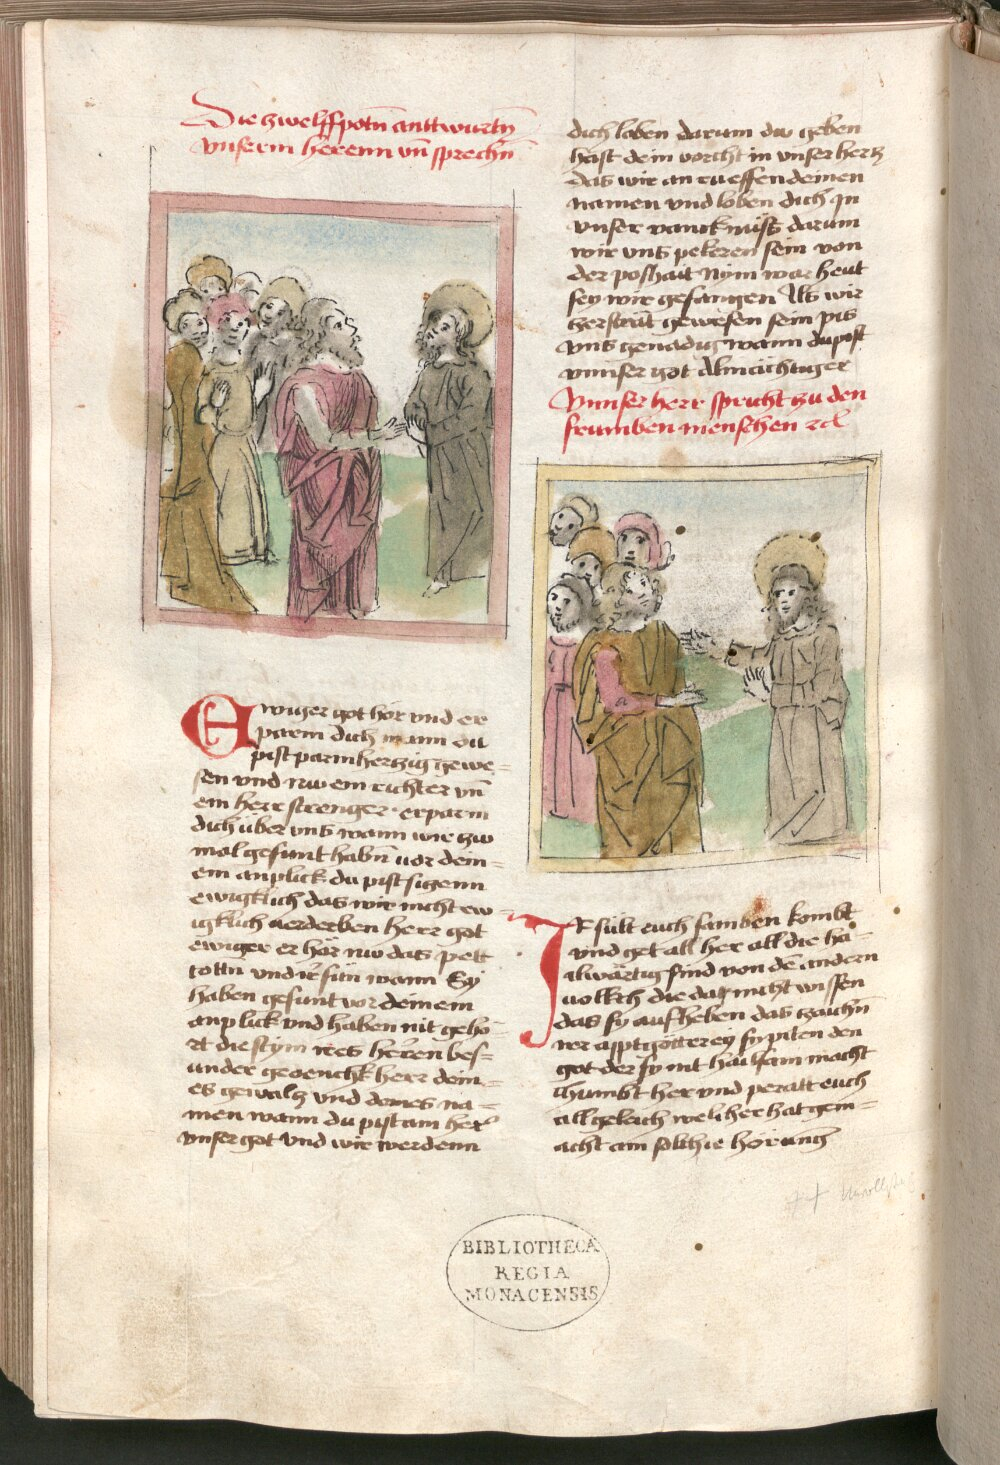 Die zwelffpotn anttwurtn
Vnserm herenn vn̄ sprechn̄
Ewiger got hör vnd er
parem dich wann du
pist parmhertzig gewe=
sen vnd nw ein richter vn̄
ein herr strenger · erparm
dich über vns wann wir zw
mal gesunt habn̄ vor dein=
em anplick du pist sigenn
ewigklich das wir nicht ew
igklich verderben herr got
ewiger er hör nw das pett
tottn vnd ir sün wann Sy
haben gesunt vor deinem
anplick vnd haben nit gehö
rt die stym ires herren bes=
under gedenckh herr dein=
es gewalz vnd deines na=
men wann du pist ain her
vnser got vnd wir werdenn
dich loben darum dw geben
hast dein vorcht in vnser hertz
das wir an rueffen deinen
namen vnd loben dich Jn
vnser vancknüss darum
wir vns pekeren sein von
der poshait Nym war heut
sey wir gefangen Als wir
zersträt gewesen sein pis
vns genadig wann du pist
vnnser got Almächtiger
Vnnser herr spricht zu den
frumben menschen
IR sült euch samben kombt
vnd get all her all die ha=
ilwärtig sind von den andern
volkch die da nicht wissen
das sy aufheben das zaichn̄
irer apptgötterey sy piten den
got der sy nit hailsam macht
Chumbt her vnd peratt euch
all geleich welicher hat gem=
acht ain söliche hörung
BIBLIOTHECA
REGIA
MONACENSIS